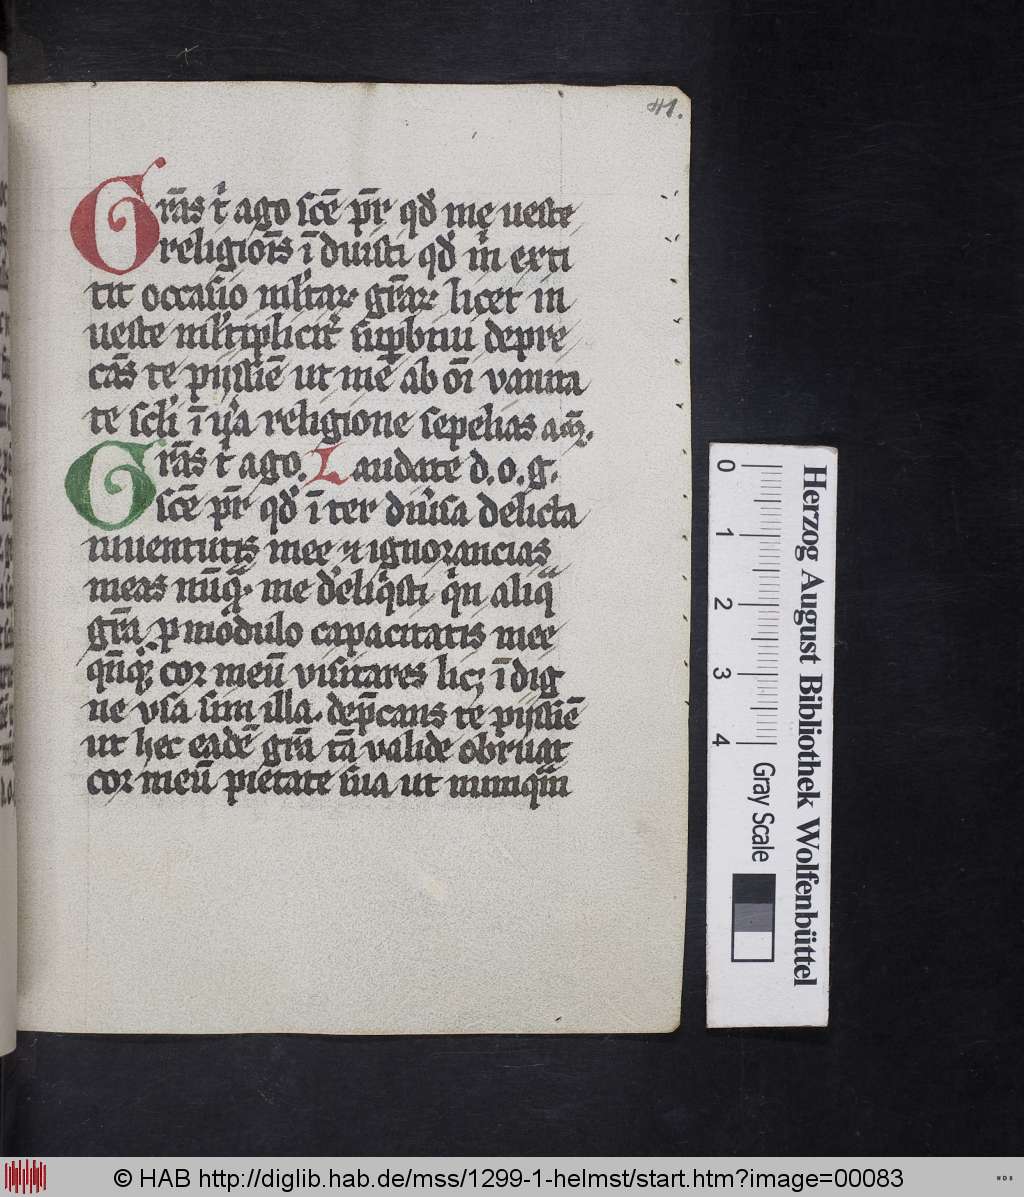 41.
Gr̄as t̄ ago sc̄e pr̄ qd̕ me ueste
religiōis ī duisti qd̕ m̄ exti
tit occasio ml̕tar· gr̄ar· licet in
ueste ml̕tiplicit̕
te pijssīe ut me ab oī vanita
te scl̕i religione sepelias
Gr̄as t̄ ago. Laudate d. o. g.
sc̄e pr̄ qd̕ ī ter delicta
iuuentutis mee ⁊ ignorancias
meas nūq̄· me aliq̄
gr̄a p modulo capacitatis mee
cor meū visitares licꝫ ī dig
ne sim illa· dep̄cans te pijssīe
ut hec eadē gr̄a valide obruat
cor meū pietate sua ut numq̄m
Herzog August Bibliothek Wolfenbüttel
0 1 2 3 4
Gray Scale
© HAB http://diglib.hab.de/mss/1299-1-helmst/start.htm?image=00083